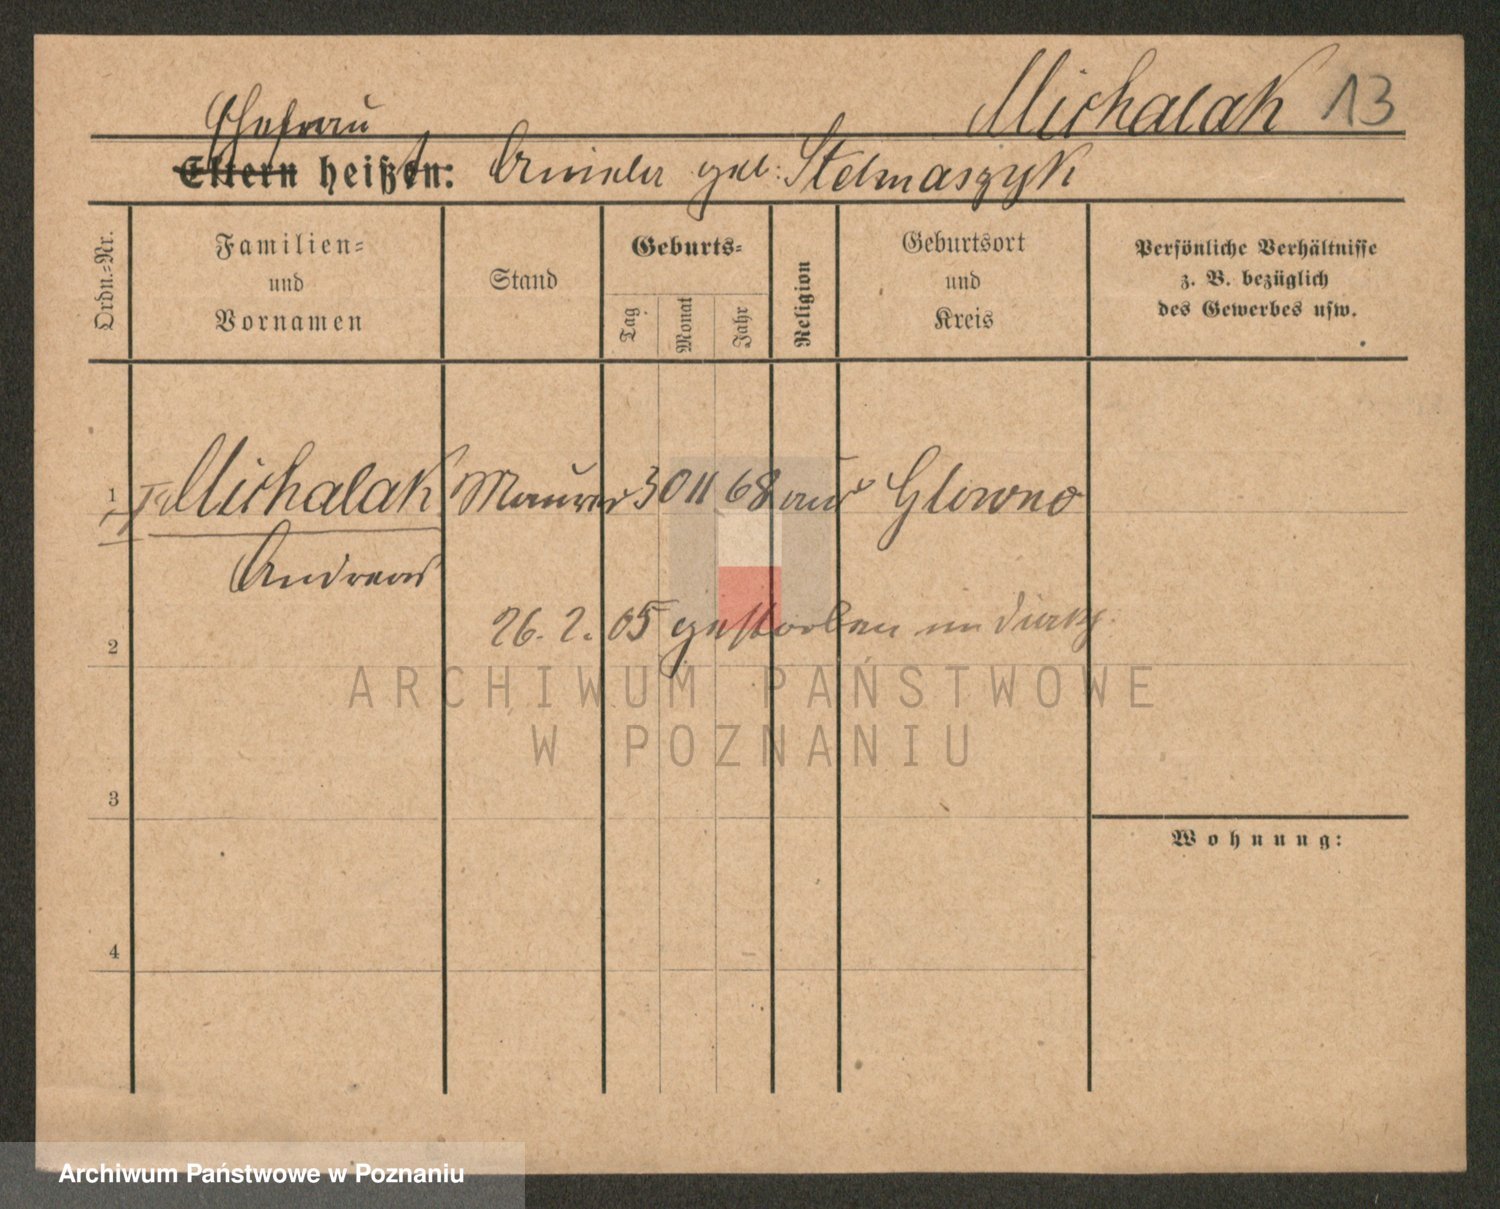 Michalak 13
Ehefrau
Eltern heißen: Aniela geb. Stelmaszyk
Ordn.=Nr.
Familien=
und
Vornamen
Stand
Geburts=
Tag
Monat
Jahr
Religion
Geburtsort
und
Kreis
Persönliche Verhältnisse
z. B. bezüglich
des Gewerbes usw.
1 Michalak Maurer 30 11 68 aus Glowno
Andreas
26. 2. 05 gestorben im
2
ARCHIWUM PAŃSTWOWE
W POZNANIU
3
Wohnung:
4
Archiwum Państwowe w Poznaniu